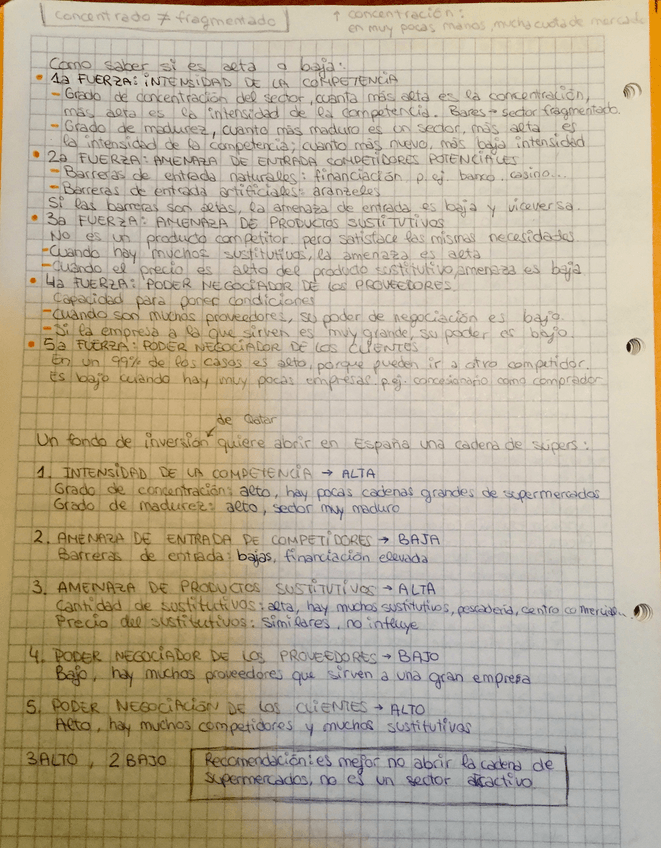 concentrado ≠ fragmentado
↑ concentración:
en muy pocas manos, mucha cuota de mercado
Como saber si es alta o baja:
• 1a FUERZA: INTENSIDAD DE LA COMPETENCIA
- Grado de concentración del sector, cuanta más alta es la concentración,
más alta es la intensidad de la competencia. Bares → sector fragmentado.
- Grado de madurez, cuanto más maduro es un sector, más alta es
la intensidad de la competencia; cuanto más nuevo, más baja intensidad
• 2a FUERZA: AMENAZA DE ENTRADA COMPETIDORES POTENCIALES
- Barreras de entrada naturales: financiación, p.ej. banco, casino...
- Barreras de entrada artificiales: aranzeles
Si las barreras son altas, la amenaza de entrada es baja y viceversa.
• 3a FUERZA: AMENAZA DE PRODUCTOS SUSTITUTIVOS
No es un producto competitor, pero satisface las mismas necesidades.
- Cuando hay muchos sustitutivos, la amenaza es alta
- Cuando el precio es alto del producto sustitutivo, amenaza es baja
• 4a FUERZA: PODER NEGOCIADOR DE LOS PROVEEDORES
Capacidad para poner condiciones
- Cuando son muchos proveedores, su poder de negociación es bajo.
- Si la empresa a la que sirven es muy grande, su poder es bajo.
• 5a FUERZA: PODER NEGOCIADOR DE LOS CLIENTES
En un 99% de los casos es alto, porque pueden ir a otro competidor.
Es bajo cuando hay muy pocas empresas p.ej. concesionario como comprador
de Qatar
Un fondo de inversión quiere abrir en España una cadena de súpers:
1. INTENSIDAD DE LA COMPETENCIA → ALTA
Grado de concentración: alto, hay pocas cadenas grandes de supermercados
Grado de madurez: alto, sector muy maduro
2. AMENAZA DE ENTRADA DE COMPETIDORES → BAJA
Barreras de entrada: bajas, financiación elevada
3. AMENAZA DE PRODUCTOS SUSTITUTIVOS → ALTA
Cantidad de sustitutivos: alta, hay muchos sustitutivos, pescadería, centro comercial...
Precio del sustitutivos: similares, no influye
4. PODER NEGOCIADOR DE LOS PROVEEDORES → BAJO
Bajo, hay muchos proveedores que sirven a una gran empresa
5. PODER NEGOCIACIÓN DE LOS CLIENTES → ALTO
Alto, hay muchos competidores y muchos sustitutivos
3 ALTO, 2 BAJO
Recomendación: es mejor no abrir la cadena de
supermercados, no es un sector atractivo.